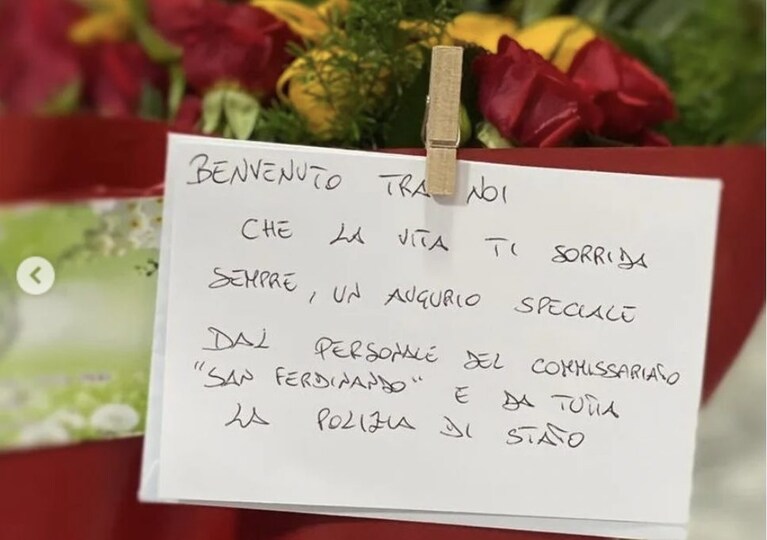 BENVENUTO TRA NOI
CHE LA VITA TI SORRIDA
SEMPRE, UN AUGURIO SPECIALE
DAL PERSONALE DEL COMMISSARIATO
"SAN FERDINANDO" E DA TUTTA
LA POLIZIA DI STATO